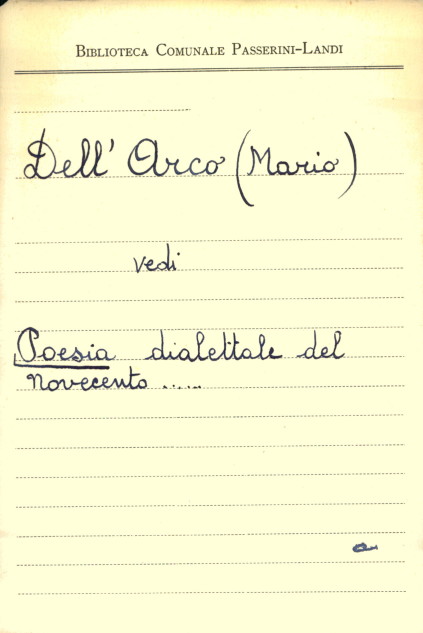 Biblioteca Comunale Passerini-Landi
Dell'Arco (Mario)
vedi
Poesia dialettale del
novecento .....